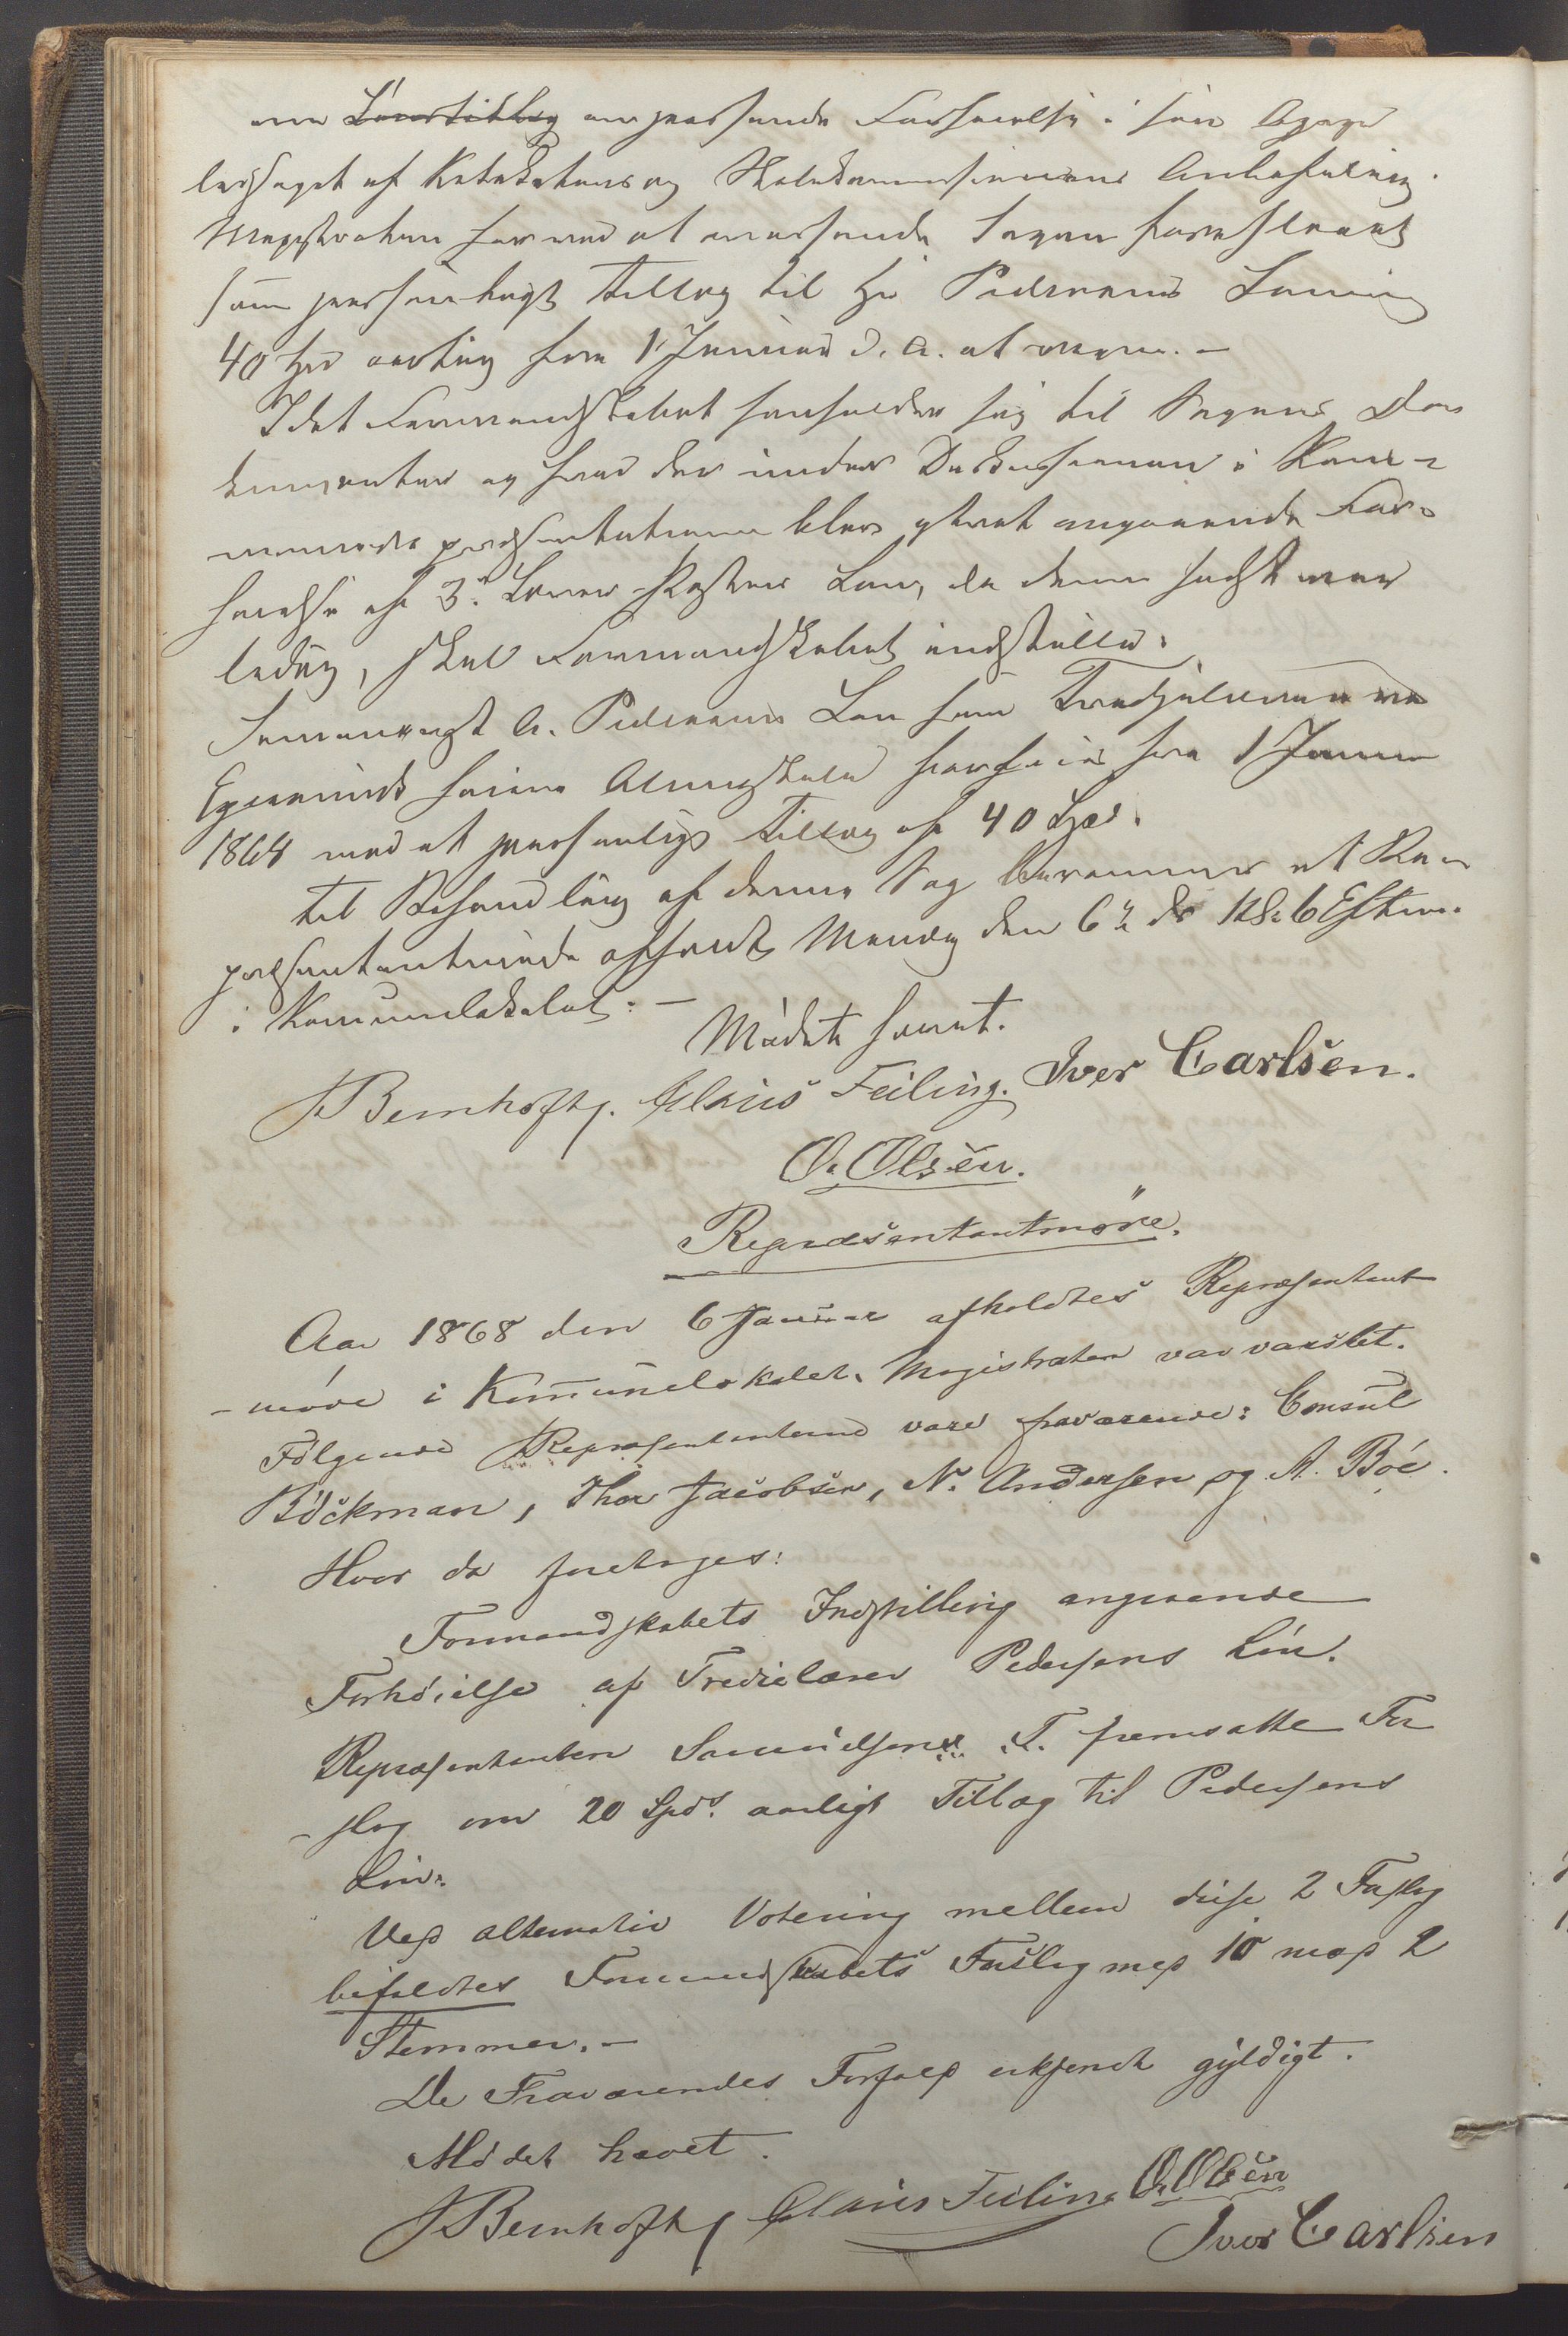 om Lønstillæg anpassende Forhøielse i sin Gage
ledsaget af Kateketens og Skolekommissionens Anbefaling.
Magistraten har ved at oversende Sagen foreslaaet
som personligt Tillæg til Hr Pedersens Lønning
40 Spd aarlig fra 1 Januar d. A. at regne. —
Idet Formandskabet henholder sig til Sagens Do
kumenter og hvad der under Diskussionen i Kom-
munerepræsentationen blev ytret angaaende For-
høielse af 3die Lærer Postens Løn, da denne sidst var
ledig, skal Formandskabet indstille:
A. Pedersens Løn som Tredielærer ved
Egersunds høiere Almueskole forhøies fra 1 Januar
1868 med et personligt Tillæg af 40 Spd.
Til Behandling af denne Sag berammes et Re-
præsentantmøde afholdt Mandag den 6te ds Kl. 6 Efterm.
i Kommunelokalet. —
Mødet hævet.
Bernhoft. Claus Feiling. Iver Carlsen.
O. Olsen.
Repræsentantmøde.
Aar 1868 den 6 Januar afholdtes Repræsentant
-møde i Kommunelokalet. Magistraten var varslet.
Følgende Repræsentanterne vare fraværende: Consul
Böckman, Thor Jacobsen, N. Andersen og A. Böe.
Hvor da foretoges:
Formandskabets Indstilling angaaende
Forhöielse af Tredielærer Pedersens Lön.
Repræsentanten Samuelsen T. fremsatte For
-slag om 20 Spds. aarligt Tillæg til Pedersens
Lön.
Ved alternativ Votering mellem disse 2 Forslag
bifaldtes Formandskabets Forslag med 10 mod 2
Stemmer. —
De Fraværendes Forfald erkjendt gyldigt.
Mödet hævet.
Bernhoft Claus Feiling O. Olsen
Iver Carlsen